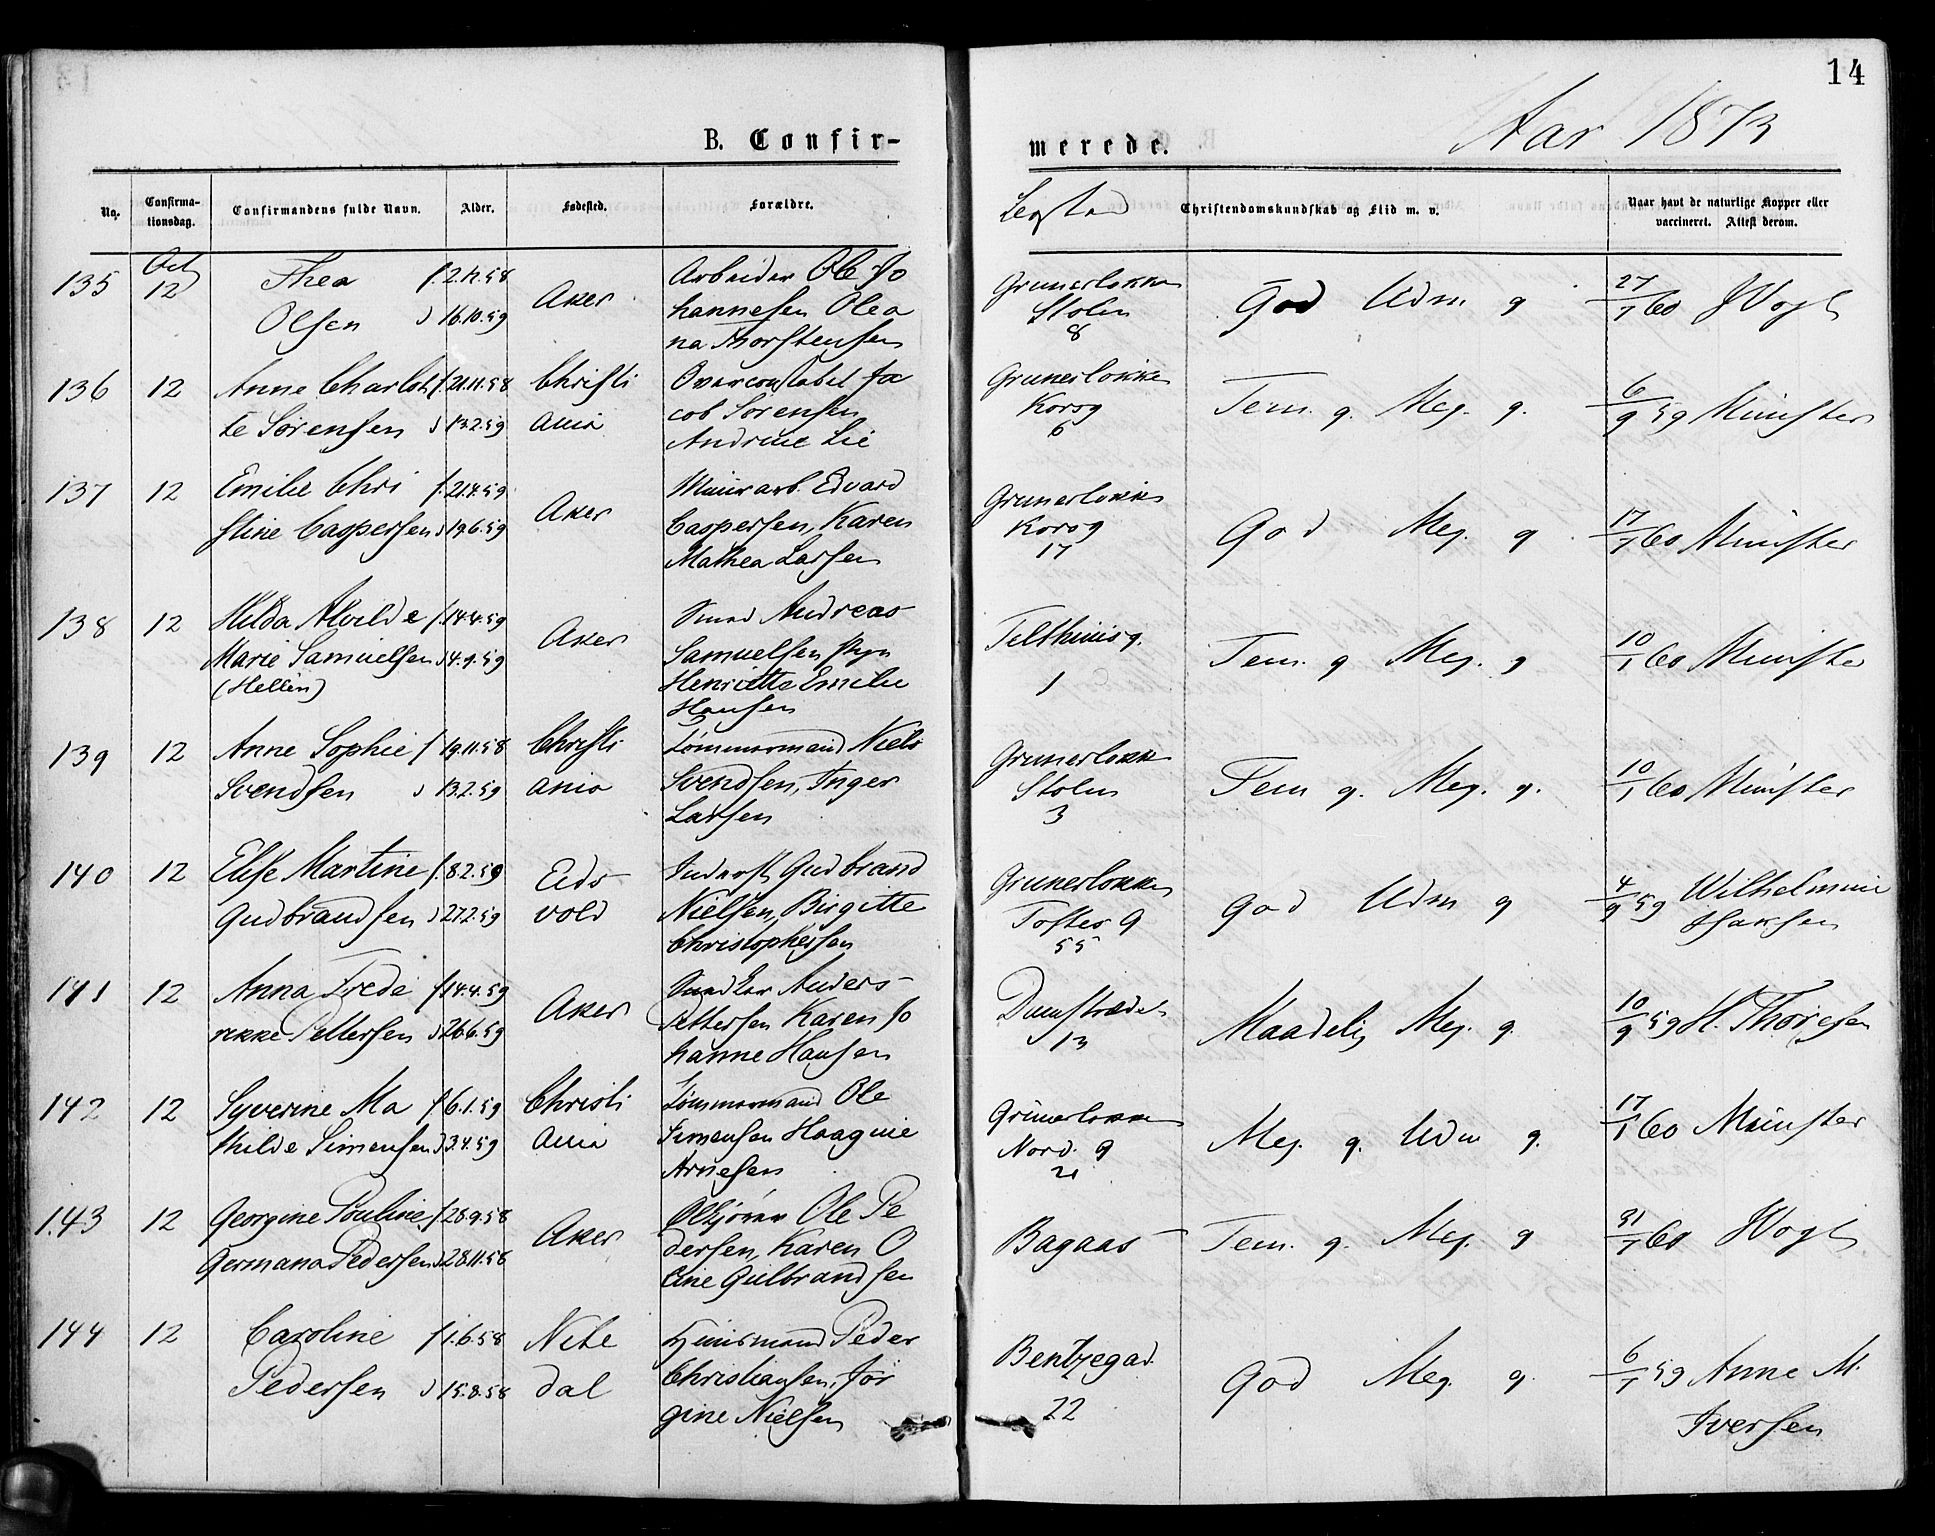 14
B. Confir-
merede.
Aar 1873
No.
Confirma-
tionsdag.
Confirmandens fulde Navn.
Alder.
Fødested.
Forældre.
Bosted
Christendomskundskab og Flid m. v.
Naar havt de naturlige Kopper eller
vaccineret. Attest derom.
135 Oct 12 Thea f. Arbeider Ole Jo
Olsen d 16.10.59 Aker hannesen Olea
na Thorstensen
Grunerløkken
Stolm
8
God Udm g 27/7 60 JVogt
136 12 Anne Charlot f. 21.11.58 Christi Overconstabel Ja
te Sørensen d 13.2.59 ania cob Sørensen
Andrine Lie
Grunerløkke
Korsg
6
Tem. g. Meg. g. 6/9 59 Münster
137 12 Emilie Chri f. 21.4.59 Aker Muurarb. Edvard
stine Caspersen d 19.6.59 Caspersen, Karen
Mathea Larsen
Grunerløkke
Korsg
17
God Meg. g 17/7 60 Münster
138 12 Hilda Alvilde f. 14.4.59 Aker Smed Andreas
Marie Samuelsen d 4.9.59 Samuelsen
(Hellen) Henriette Emilie
Hansen
Telthuusg.
1
Tem. g Meg. g 10/1 60 Münster
139 12 Anne Sophie f 19.11.58 Christi Tømmermand Niels
Svendsen d 13.2.59 ania Svendsen, Inger
Larsen
Grunerløkk
Stolm
3
Tem g. Meg. g. 10/1 60 Münster
140 12 Elise Martine f. 8.2.59 Eids Inderst Gudbrand
Gudbrandsen d 27.2.59 vold Nielsen, Birgitte
Christophersen
Grunerløkken
Toftes G
55
God Udm g 4/9 59 Wilhelmine
Isaksen
141 12 Anna Frede f. 14.4.59 Aker Anders
rikke Pettersen d 26.6.59 Pettersen Karen Jo
hanne Hansen
Damstrædet
13
Maadelig Meg. g. 10/9 59 H. Thoresen
142 12 Syverine Ma f 6.1.59 Christi Tømmermand Ole
thilde Simensen d 3.4.59 ania Simensen Haagine
Arnesen
Grünerløkken
Nord. g
21
Meg. g. Udm g. 17/1 60 Münster
143 12 Georgine Pouline f 28.9.58 Aker Ølkjører Ole Pe
Germana Pedersen d 28.11.58 dersen, Karen O
line Gulbrandsen
Bagaas
Tem. g. Meg. g 31/7 60 JVogt
144 12 Caroline f 1.6.58 Nite Huusmand Peder
Pedersen d 15.8.58 dal Christiansen, Jør
gine Nielsen
Bentzegad.
22
God Meg. g. 6/7 59 Anne M.
Iversen